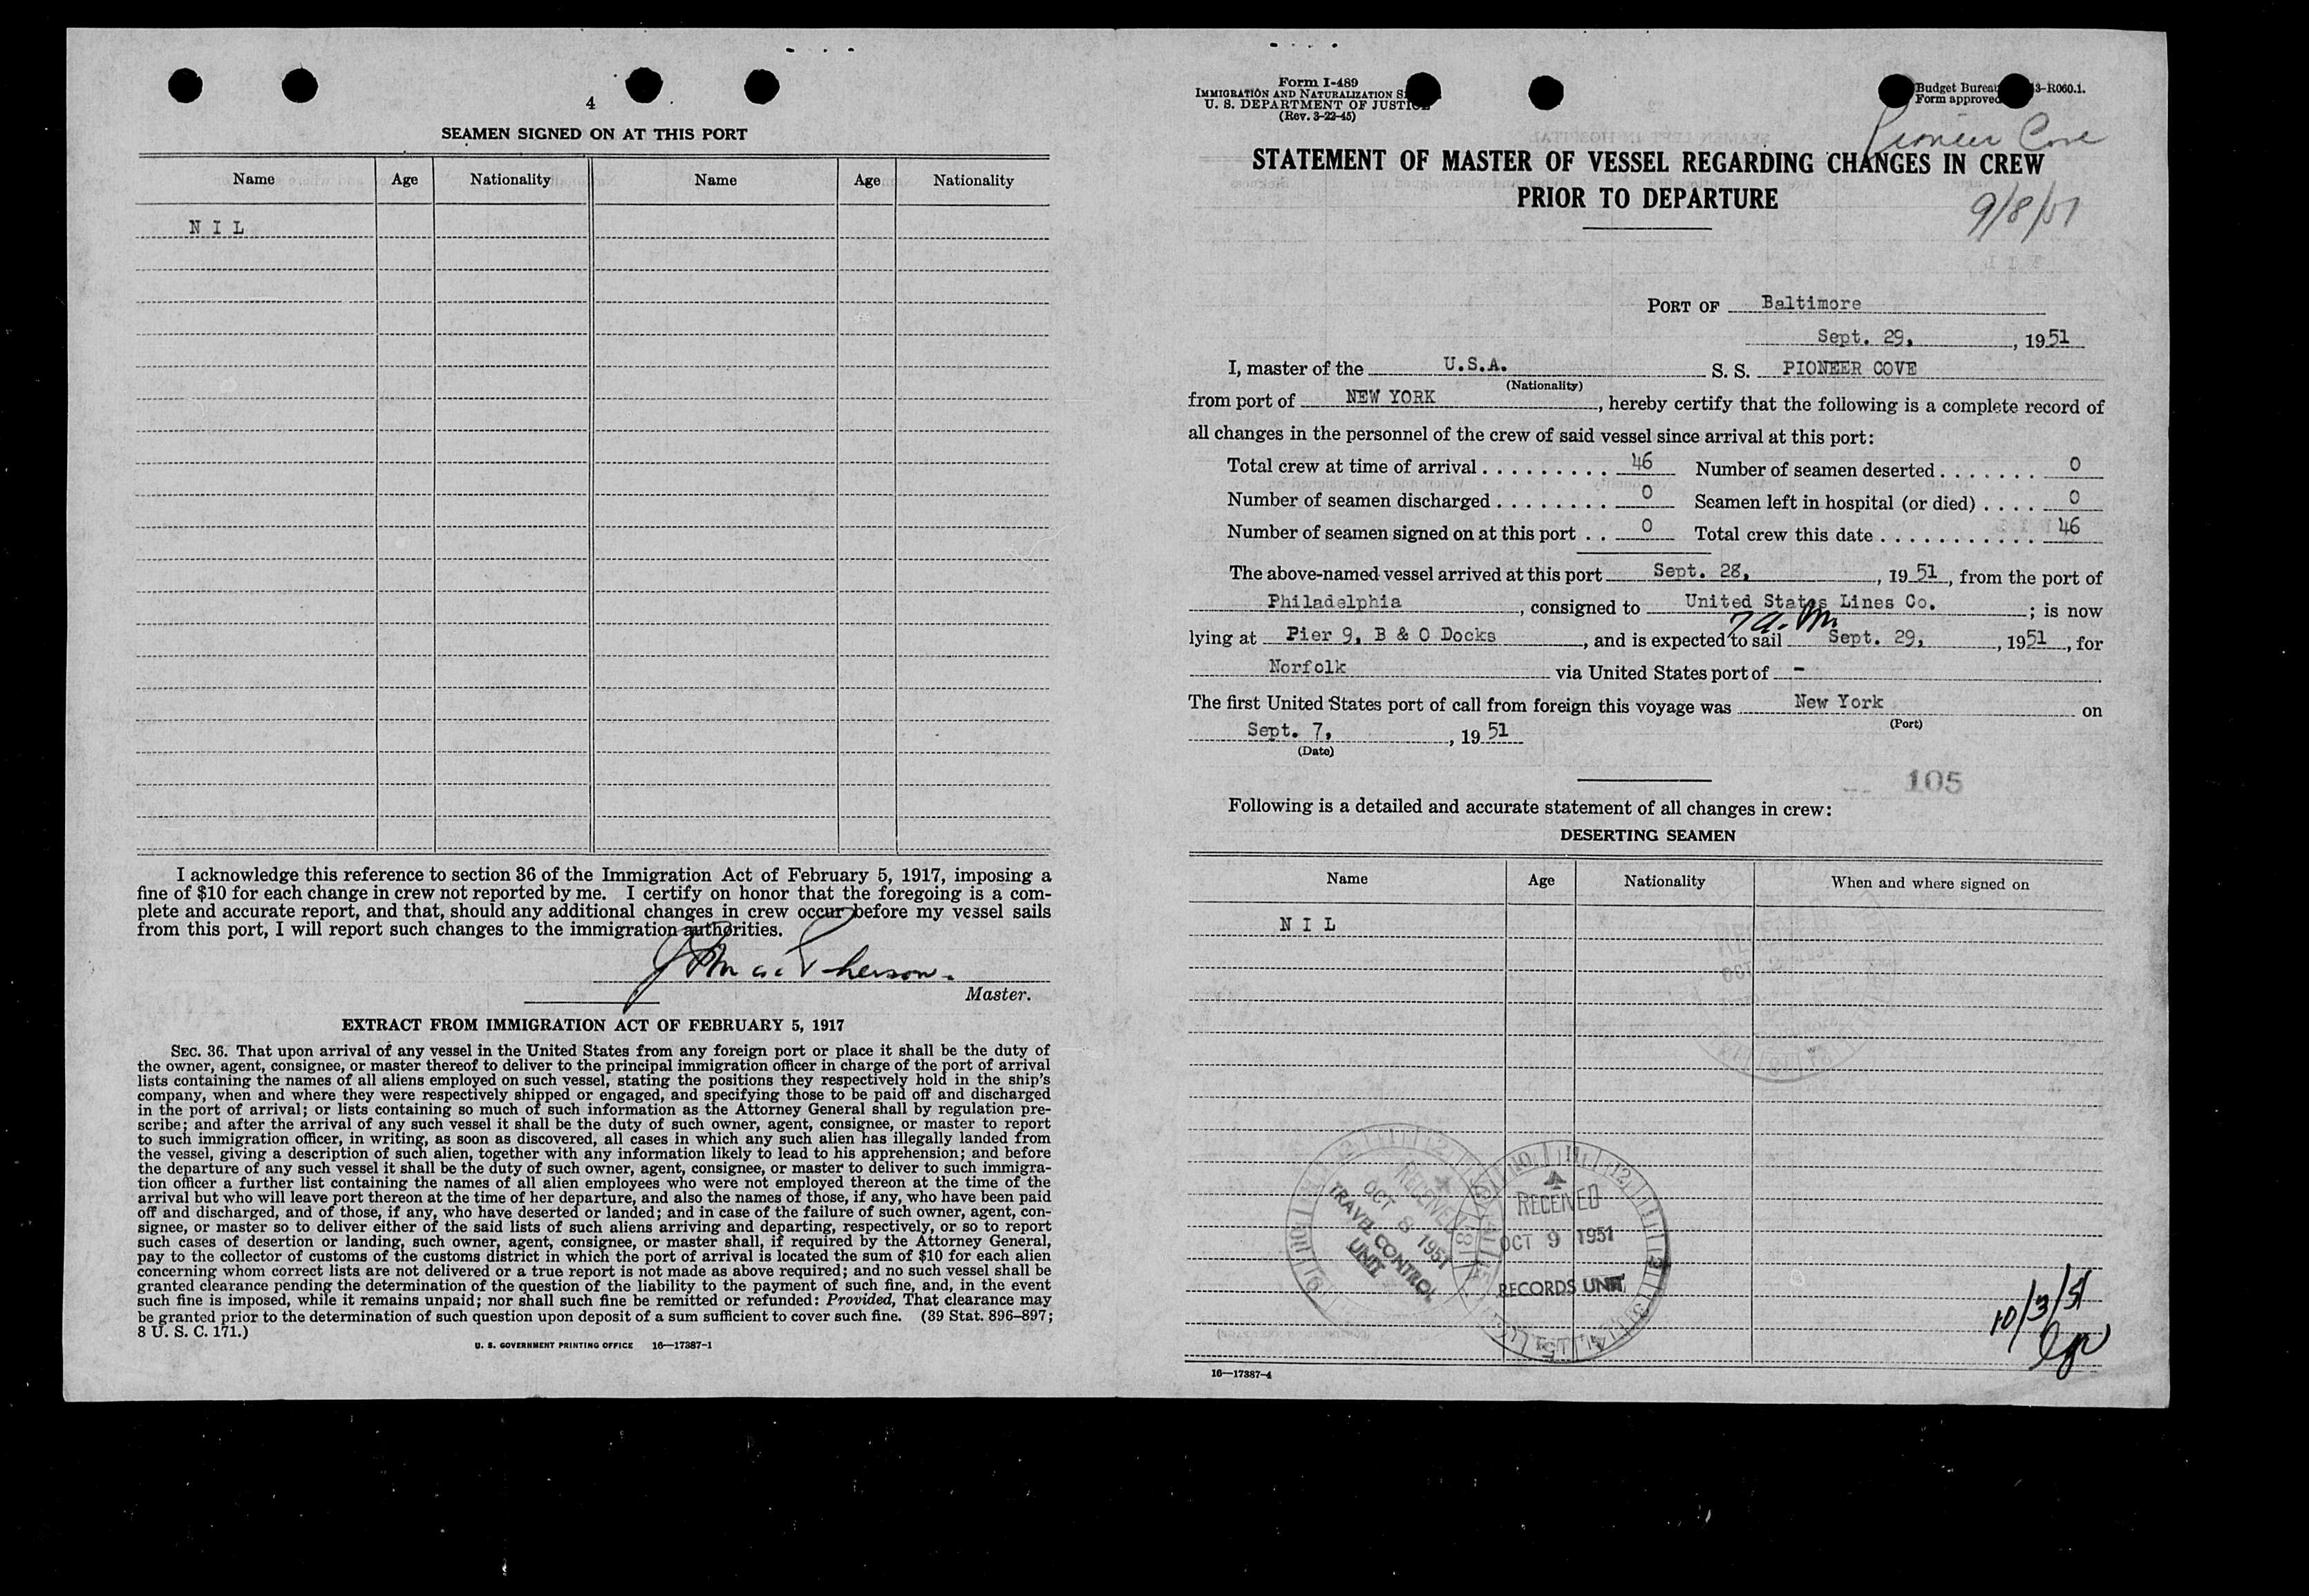 4
SEAMEN SIGNED ON AT THIS PORT
Name Age Nationality Name Age Nationality
N I L
I acknowledge this reference to section 36 of the Immigration Act of February 5, 1917, imposing a
fine of $10 for each change in crew not reported by me. I certify on honor that the foregoing is a com-
plete and accurate report, and that, should any additional changes in crew occur before my vessel sails
from this port, I will report such changes to the immigration authorities.
Master.
EXTRACT FROM IMMIGRATION ACT OF FEBRUARY 5, 1917
SEC. 36. That upon arrival of any vessel in the United States from any foreign port or place it shall be the duty of
the owner, agent, consignee, or master thereof to deliver to the principal immigration officer in charge of the port of arrival
lists containing the names of all aliens employed on such vessel, stating the positions they respectively hold in the ship's
company, when and where they were respectively shipped or engaged, and specifying those to be paid off and discharged
in the port of arrival; or lists containing so much of such information as the Attorney General shall by regulation pre-
scribe; and after the arrival of any such vessel it shall be the duty of such owner, agent, consignee, or master to report
to such immigration officer, in writing, as soon as discovered, all cases in which any such alien has illegally landed from
the vessel, giving a description of such alien, together with any information likely to lead to his apprehension; and before
the departure of any such vessel it shall be the duty of such owner, agent, consignee, or master to deliver to such immigra-
tion officer a further list containing the names of all alien employees who were not employed thereon at the time of the
arrival but who will leave port thereon at the time of her departure, and also the names of those, if any, who have been paid
off and discharged, and of those, if any, who have deserted or landed; and in case of the failure of such owner, agent, con-
signee, or master so to deliver either of the said lists of such aliens arriving and departing, respectively, or so to report
such cases of desertion or landing, such owner, agent, consignee, or master shall, if required by the Attorney General,
pay to the collector of customs of the customs district in which the port of arrival is located the sum of $10 for each alien
concerning whom correct lists are not delivered or a true report is not made as above required; and no such vessel shall be
granted clearance pending the determination of the question of the liability to the payment of such fine, and, in the event
such fine is imposed, while it remains unpaid; nor shall such fine be remitted or refunded: Provided, That clearance may
be granted prior to the determination of such question upon deposit of a sum sufficient to cover such fine. (39 Stat. 896–897;
8 U. S. C. 171.)
U. S. GOVERNMENT PRINTING OFFICE 16—17387-1
Form I-489
IMMIGRATION AND NATURALIZATION
U. S. DEPARTMENT OF JUSTICE
(Rev. 3-22-45)
Budget Bureau 3-R060.1.
Form approved
Pioneer Cove
STATEMENT OF MASTER OF VESSEL REGARDING CHANGES IN CREW
PRIOR TO DEPARTURE
9/8/51
PORT OF Baltimore
Sept. 29, , 1951
I, master of the U.S.A. S. S. PIONEER COVE
(Nationality)
from port of NEW YORK , hereby certify that the following is a complete record of
all changes in the personnel of the crew of said vessel since arrival at this port:
Total crew at time of arrival . . . . . . . . . 46 Number of seamen deserted . . . . . . . 0
Number of seamen discharged . . . . . . . . 0 Seamen left in hospital (or died) . . . . 0
Number of seamen signed on at this port . . 0 Total crew this date . . . . . . . . . . . 46
The above-named vessel arrived at this port Sept. 28, , 1951, from the port of
Philadelphia , consigned to United States Lines Co. ; is now
7 a.m.
lying at Pier 9, B & O Docks , and is expected to sail Sept. 29, , 1951, for
Norfolk via United States port of -
The first United States port of call from foreign this voyage was New York on
(Port)
Sept. 7, , 1951
(Date)
105
Following is a detailed and accurate statement of all changes in crew:
DESERTING SEAMEN
Name Age Nationality When and where signed on
N I L
RECEIVED
OCT 8 1951
TRAVEL CONTROL
UNIT
RECEIVED
OCT 9 1951
RECORDS UNIT
10/3/51
16—17387-4